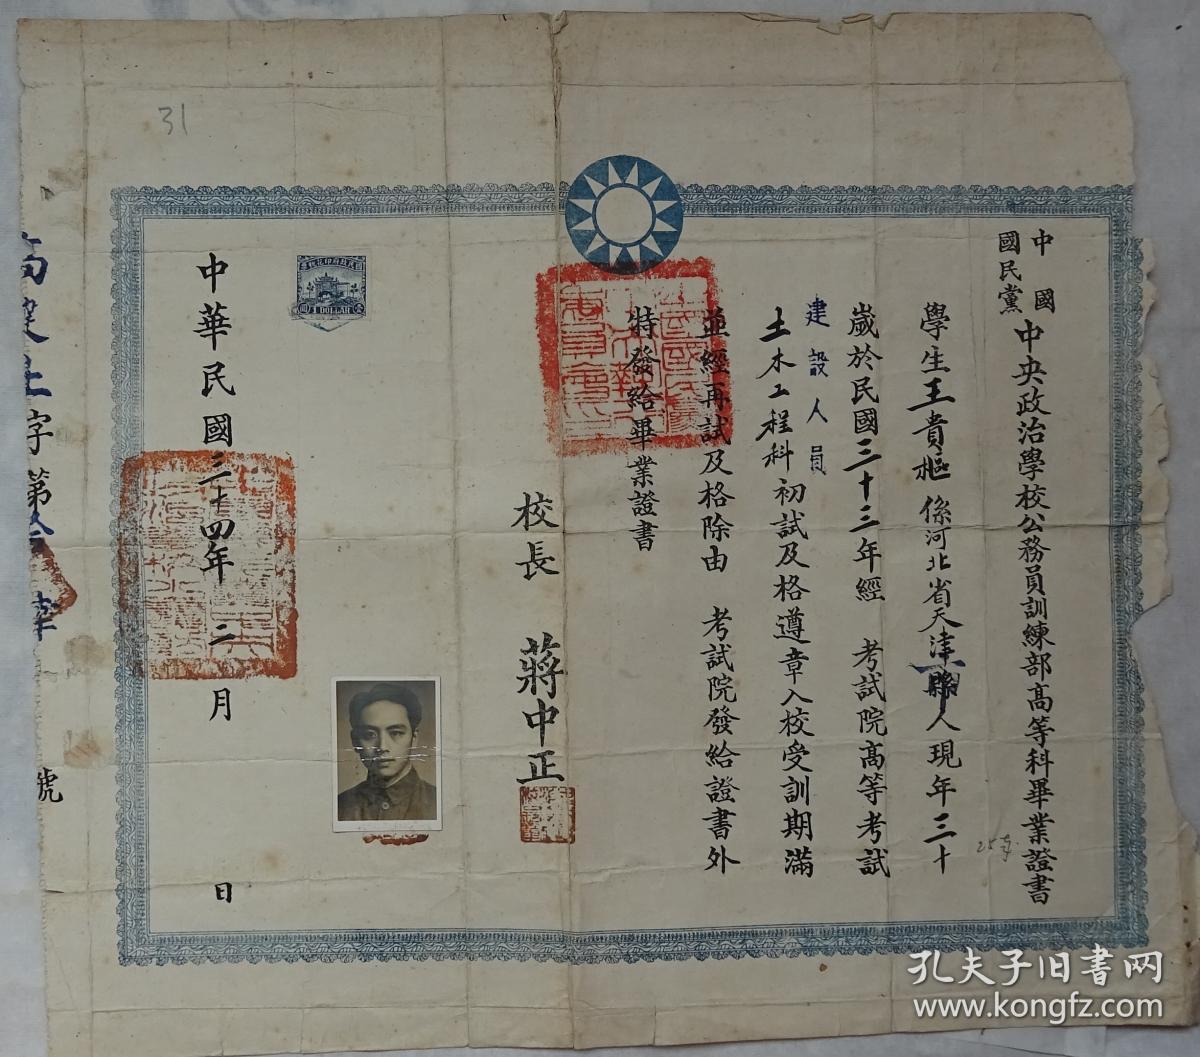 中國
國民黨
中央政治學校公務員訓練部高等科畢業證書
學生王貴樞係河北省天津縣人現年三十
歲於民國三十三年經 考試院高等考試
建設人員
土木工程科初試及格遵章入校受訓期滿
並經再試及格除由 考試院發給證書外
特發給畢業證書
校長 蔣中正
中華民國三十四年 二 月 日
字第
號
31
1 DOLLAR
孔夫子旧书网
www.kongfz.com